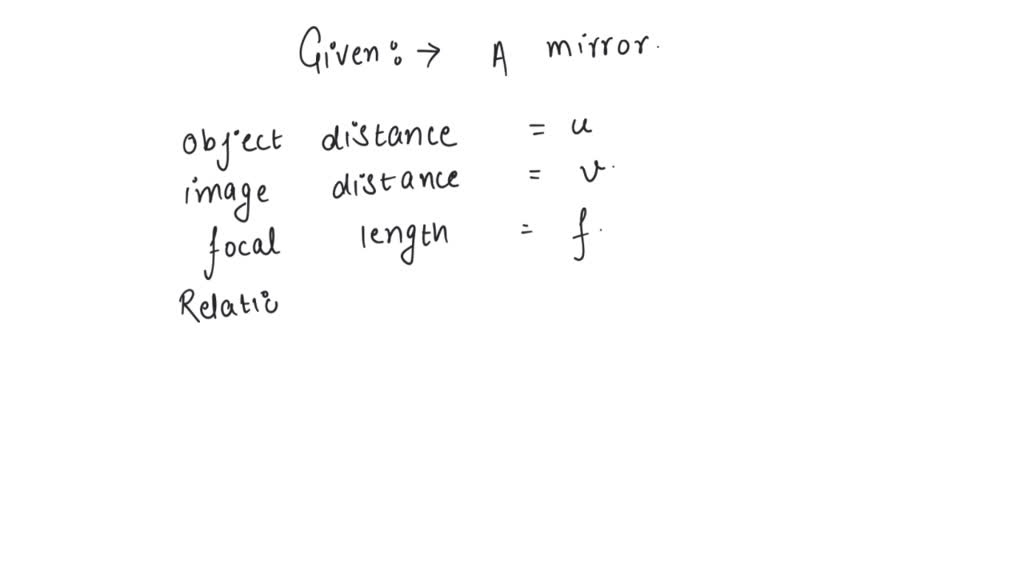 Given: → A mirror.
object distance = u
image distance = v.
focal length = f.
Relatio